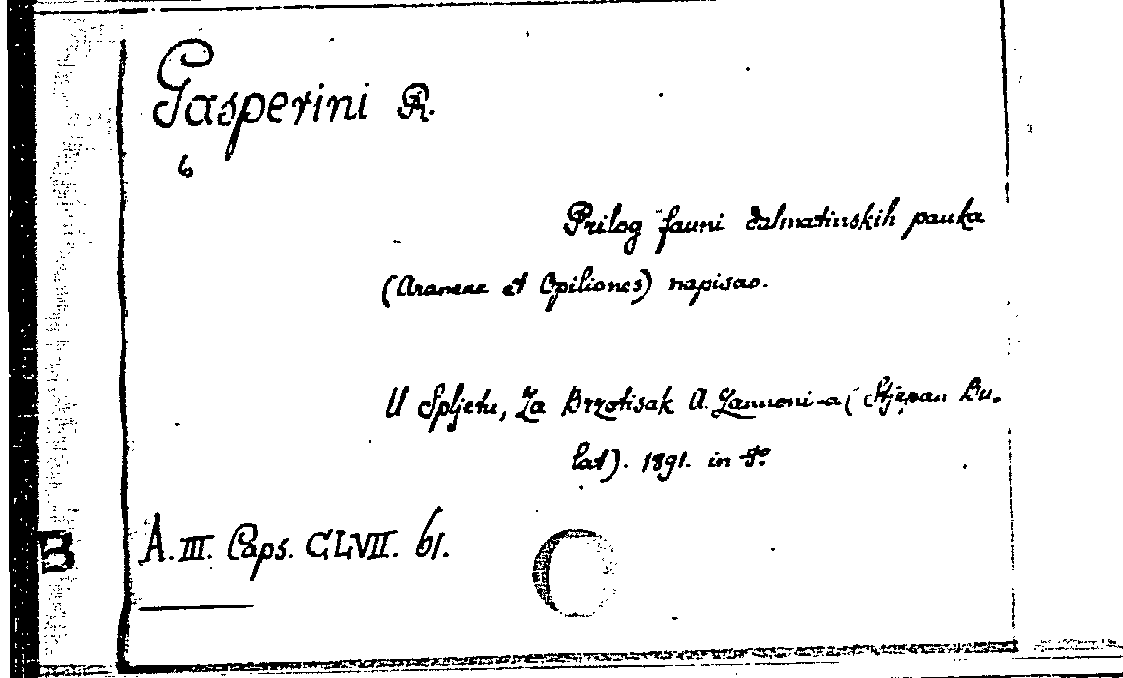 Gasperini R.
6
Prilog fauni dalmatinskih pauka
(Araneae et Opiliones) napisao.
U Spljetu, Za Brzotisak A. Zannoni-a (Stjepan Bu-
lat). 1891. in 8°
A. III. Caps. CLVII. 61.
B